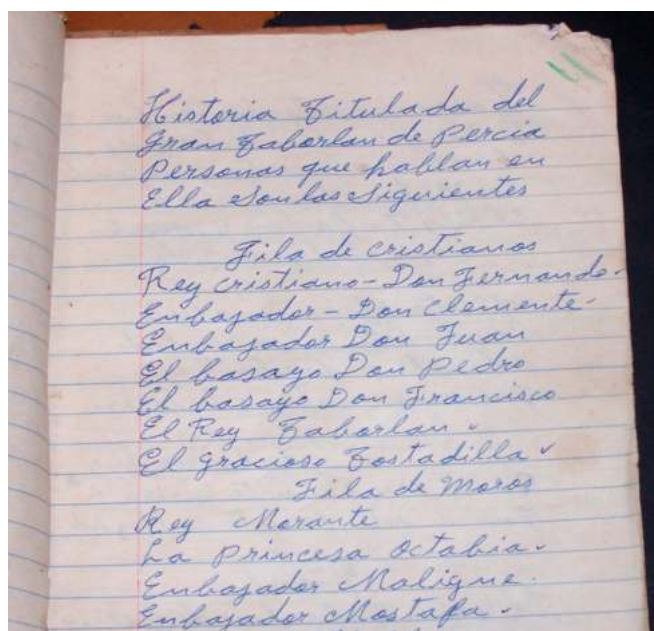 Historia Titulada del
Gran Taborlan de Percia
Personas que hablan en
Ella Son las Siguientes
Fila de cristianos
Rey cristiano - Don Fernando -
Enbajador - Don Clemente -
Enbajador Don Juan
El basayo Don Pedro
El basayo Don Francisco
El Rey Taborlan
El gracioso Tostadilla
Fila de Moros
Rey Morante
La Princesa Octabia
Enbajador Maligne.
Enbajador Mostafa